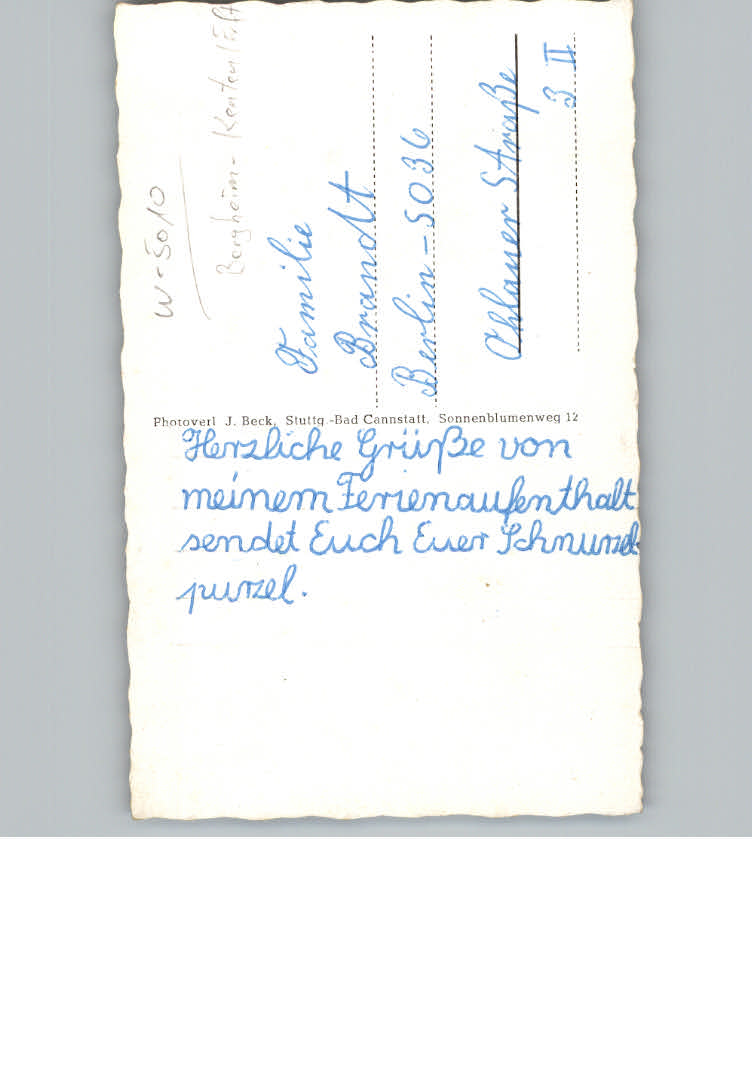 W-5010
Bergheim-Kenten/Erft
Familie
Brandt
Berlin-SO36
Ohlauer Straße
3 II
Photoverl. J. Beck, Stuttg.-Bad Cannstatt, Sonnenblumenweg 12
Herzliche Grüße von
meinem Ferienaufenthalt
sendet Euch Euer Schnurzel-
purzel.